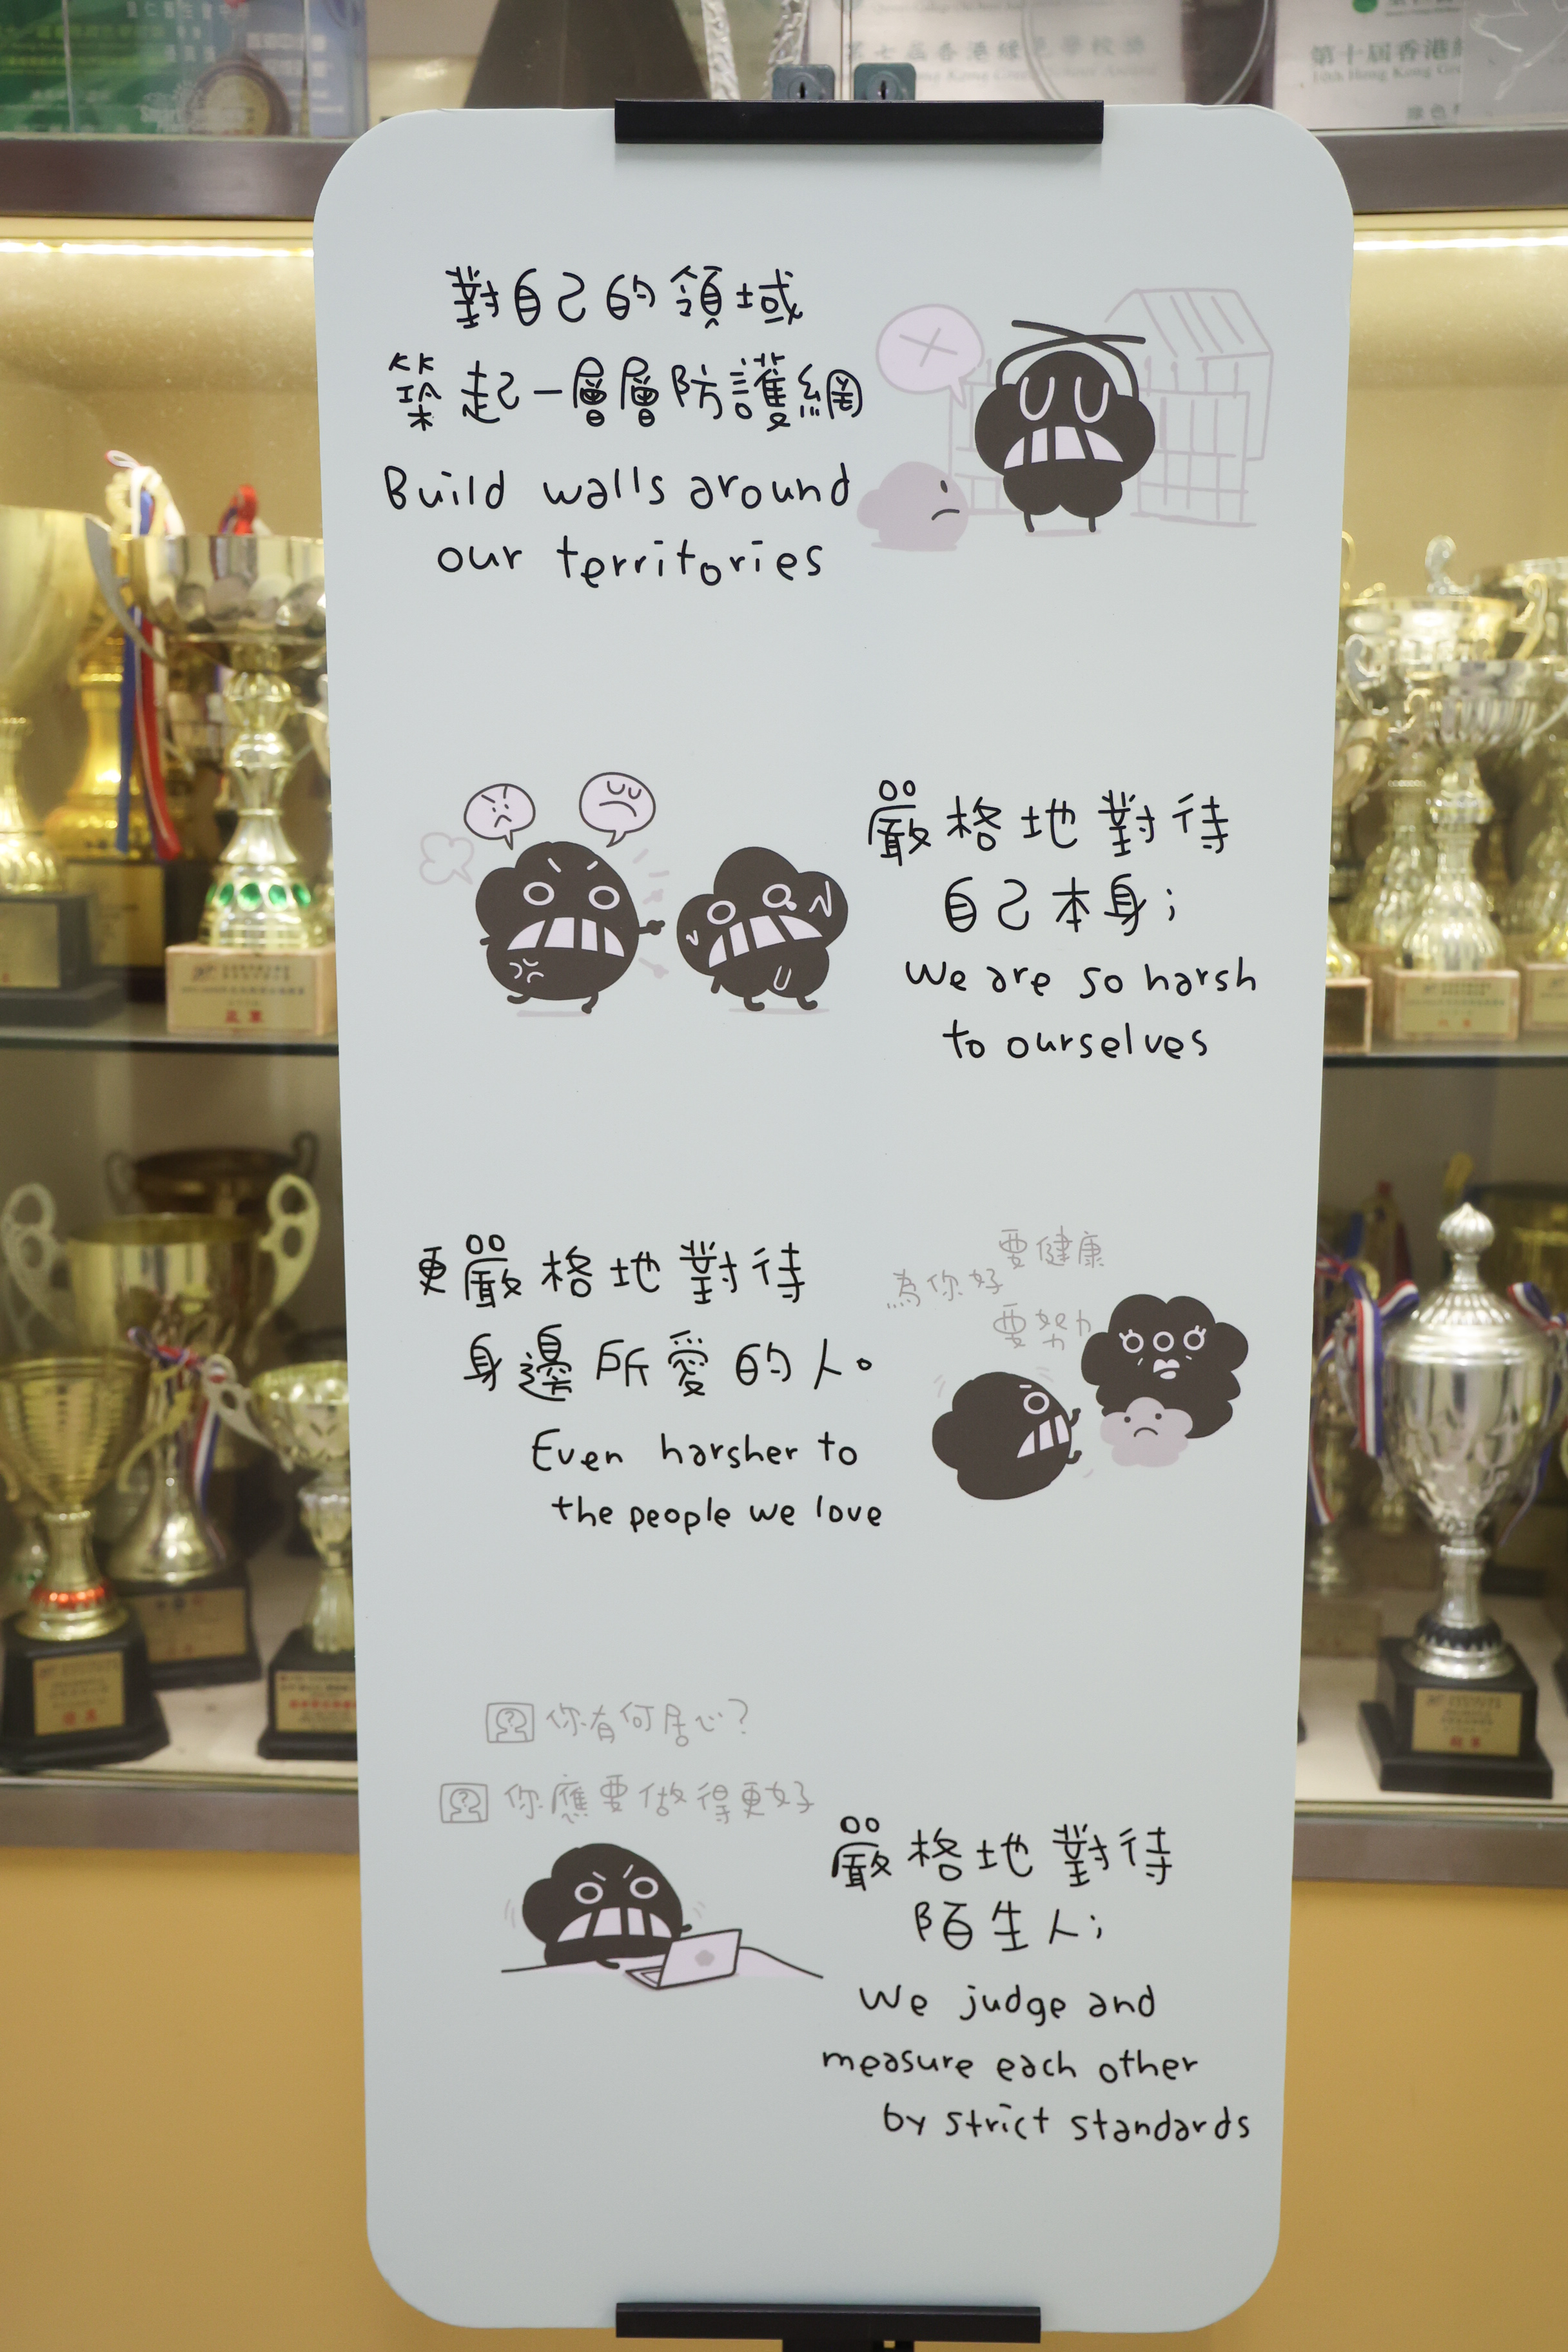 第七屆香港綠色學校獎
第十屆香港綠
10th Hong Kong Gre
對自己的領域
築起一層層防護網
Build walls around
our territories
嚴格地對待
自己本身；
We are so harsh
to ourselves
更嚴格地對待
身邊所愛的人。
Even harsher to
the people we love
要健康
為你好
要努力
你有何居心？
你應要做得更好
嚴格地對待
陌生人；
We judge and
measure each other
by strict standards